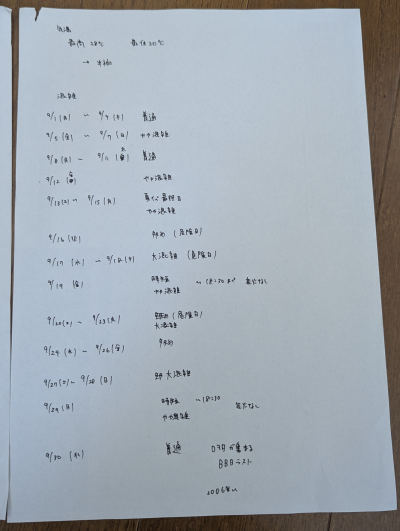 気温
最高 28℃ 最低 20℃
→ 半袖
混雑
9/1(月) ~ 9/4(木) 普通
9/5(金) ~ 9/7(日) やや混雑
9/8(月) ~ 9/11(木) 普通
9/12(金) やや混雑
9/13(土) ~ 9/15(月) 最終日
やや混雑
9/16(火) (危険日)
9/17(水) ~ 9/18(木) 大混雑 (危険日)
9/19(金) 時短 ~18:30まで 花火なし
やや混雑
9/20(土) ~ 9/23(火) (危険日)
大混雑
9/24(水) ~ 9/26(金)
9/27(土) ~ 9/28(日) 大混雑
9/29(月) 時短 ~18:30 花火なし
やや混雑
9/30(火) 普通 が集まる
BBBラスト